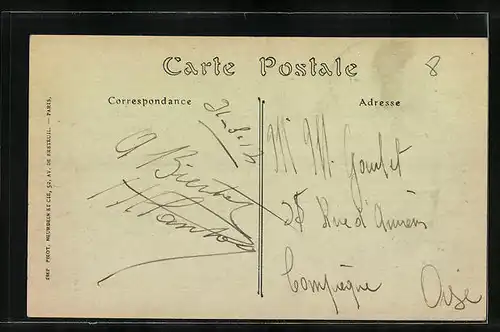 Carte Postale
8
Correspondance
Adresse
A Bientot
M M. Goubet
25 Rue d'Amiens
Compiègne Oise
PHOT. NEURDEIN ET CIE, 52, AV. DE BRETEUIL. — PARIS.